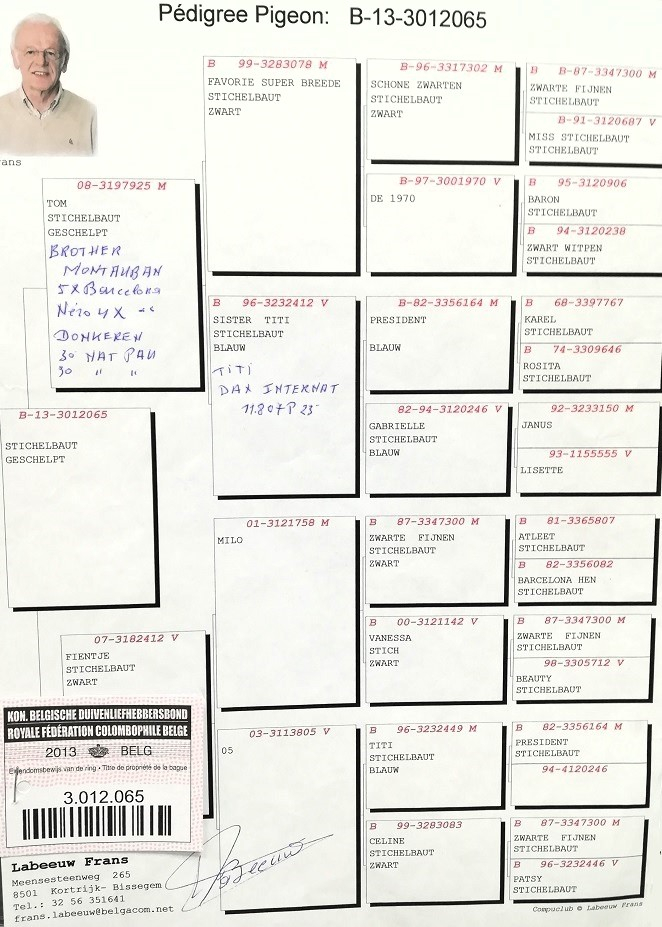 Pédigree Pigeon: B-13-3012065
rans
B-13-3012065
STICHELBAUT
GESCHELPT
08-3197925 M
TOM
STICHELBAUT
GESCHELPT
BROTHER
MONTAUBAN
5X Barcelona
Néro 4X
DONKEREN
30 NAT PAU
30 " "
07-3182412 V
FIENTJE
STICHELBAUT
ZWART
B 99-3283078 M
FAVORIE SUPER BREEDE
STICHELBAUT
ZWART
B 96-3232412 V
SISTER TITI
STICHELBAUT
BLAUW
TITI
DAX INTERNAT
11.807P 25
01-3121758 M
MILO
03-3113805 V
05
B-96-3317302 M
SCHONE ZWARTEN
STICHELBAUT
ZWART
B-97-3001970 V
DE 1970
B-82-3356164 M
PRESIDENT
BLAUW
82-94-3120246 V
GABRIELLE
STICHELBAUT
BLAUW
B 87-3347300 M
ZWARTE FIJNEN
STICHELBAUT
ZWART
B 00-3121142 V
VANESSA
STICH
ZWART
B 96-3232449 M
TITI
STICHELBAUT
BLAUW
B 99-3283083
CELINE
STICHELBAUT
ZWART
B B-87-3347300 M
ZWARTE FIJNEN
STICHELBAUT
B-91-3120687 V
MISS STICHELBAUT
STICHELBAUT
B 95-3120906
BARON
STICHELBAUT
B 94-3120238
ZWART WITPEN
STICHELBAUT
B 68-3397767
KAREL
STICHELBAUT
B 74-3309646
ROSITA
STICHELBAUT
92-3233150 M
JANUS
93-1155555 V
LISETTE
B 81-3365807
ATLEET
STICHELBAUT
B 82-3356082
BARCELONA HEN
STICHELBAUT
B 87-3347300 M
ZWARTE FIJNEN
STICHELBAUT
98-3305712 V
BEAUTY
STICHELBAUT
B 82-3356164 M
PRESIDENT
STICHELBAUT
94-4120246
B 87-3347300 M
ZWARTE FIJNEN
STICHELBAUT
B 96-3232446 V
PATSY
STICHELBAUT
KON. BELGISCHE DUIVENLIEFHEBBERSBOND
ROYALE FÉDÉRATION COLOMBOPHILE BELGE
2013 BELG
Eigendomsbewijs van de ring • Titre de propriété de la bague
3.012.065
Labeeuw Frans
Meensesteenweg 265
8501 Kortrijk- Bissegem
Tel.: 32 56 351641
frans.labeeuw@belgacom.net
Compuclub © Labeeuw Frans